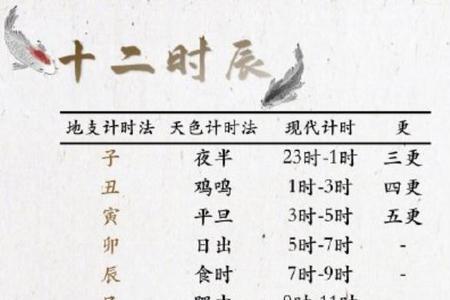 十二时辰
地支计时法 天色计时法 现代计时 更
子 夜半 23时-1时 三更
丑 鸡鸣 1时-3时 四更
寅 平旦 3时-5时 五更
卯 日出 5时-7时 -
辰 食时 7时-9时 -